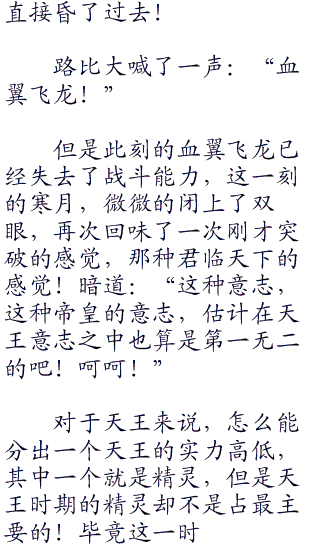 直接昏了过去！
路比大喊了一声：“血
翼飞龙！”
但是此刻的血翼飞龙已
经失去了战斗能力，这一刻
的寒月，微微的闭上了双
眼，再次回味了一次刚才突
破的感觉，那种君临天下的
感觉！暗道：“这种意志，
这种帝皇的意志，估计在天
王意志之中也算是第一无二
的吧！呵呵！”
对于天王来说，怎么能
分出一个天王的实力高低，
其中一个就是精灵，但是天
王时期的精灵却不是占最主
要的！毕竟这一时